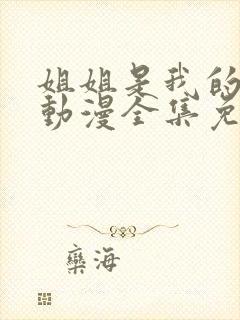 姐姐是我的
動漫全集免
欒海